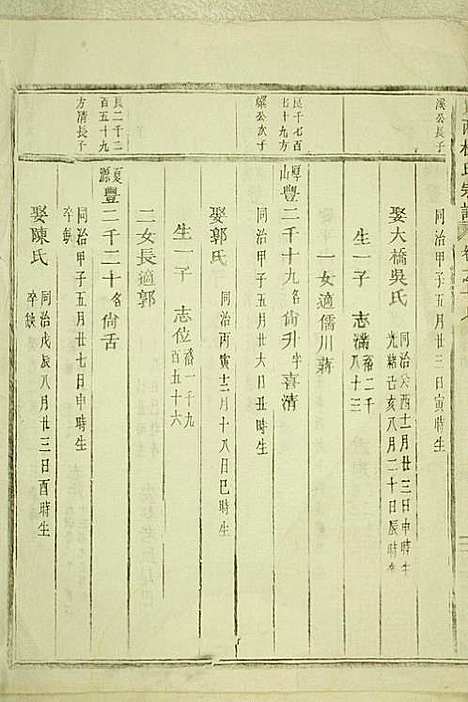 溪公長子
同治甲子五月廿三日寅時生
娶大橋吳氏 同治癸酉十一月廿三日申時生
光緒己亥八月二十日辰時卒
生一子 志滿 裕二千
八十三
一女適儒川蔣
良千七百
七十九方
螺公次子
厚山 豐二千十九名尙升字喜清
同治甲子五月廿六日丑時生
娶郭氏 同治丙寅十二月十八日巳時生
生一子 志位 裕一千九
百五十六
二女長適郭
良二千二
百五十九
方清長子
夏源 豐二千二十名尙舌
同治甲子五月廿七日申時生
卒缺
娶陳氏 同治戊辰八月廿三日酉時生
卒缺